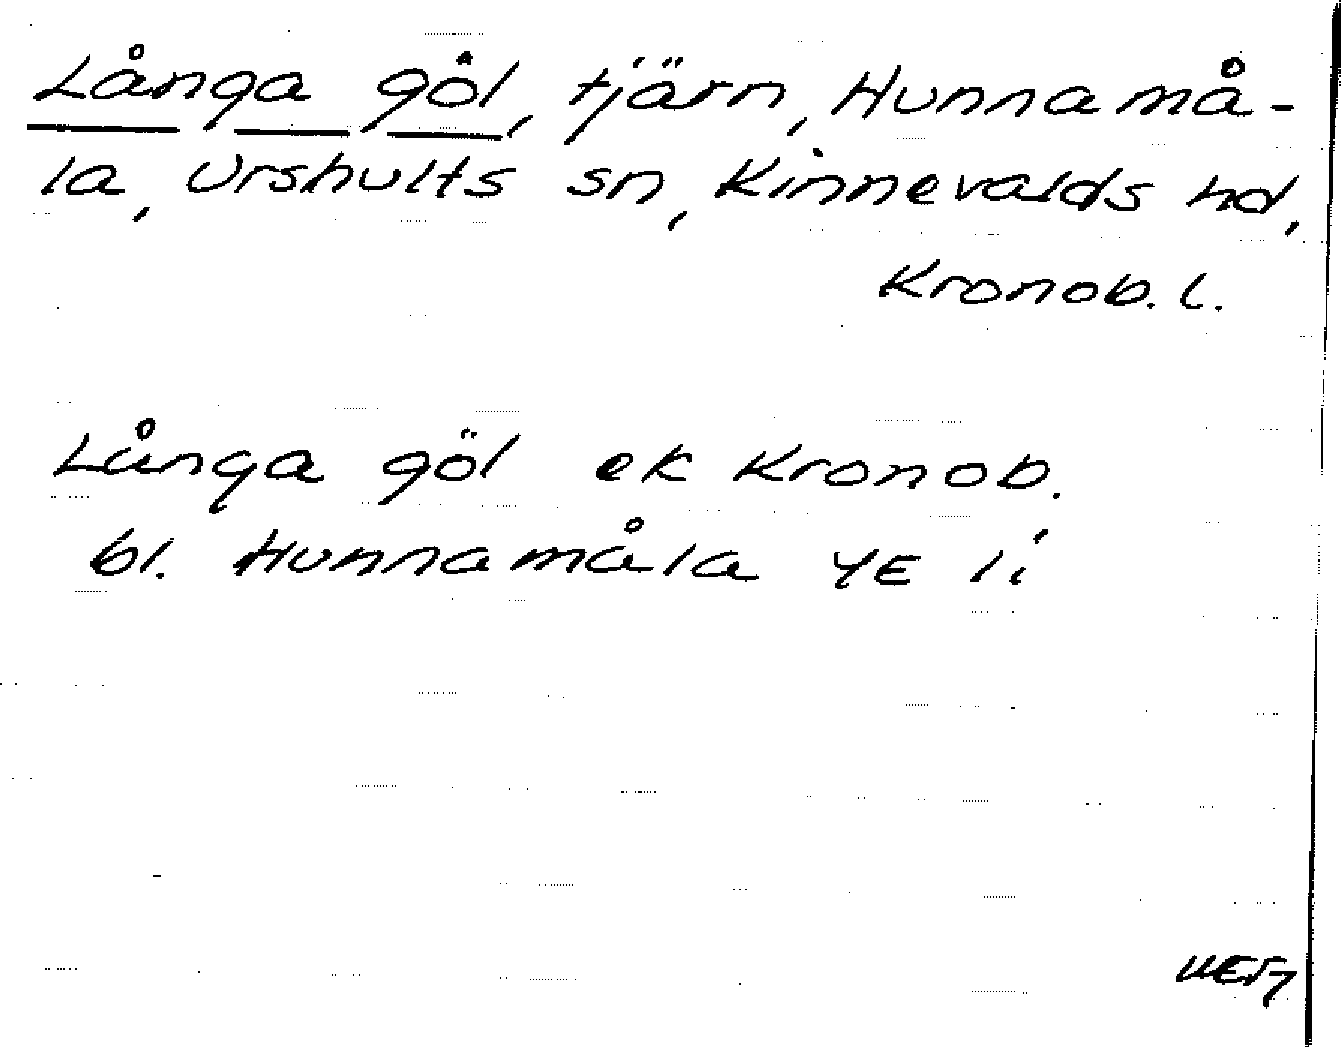 Långa göl, tjärn, Hunnamå-
la, Urshults sn, Kinnevalds hd,
Kronob. l.
Långa göl ek Kronob.
bl. Hunnamåla 4E 1i